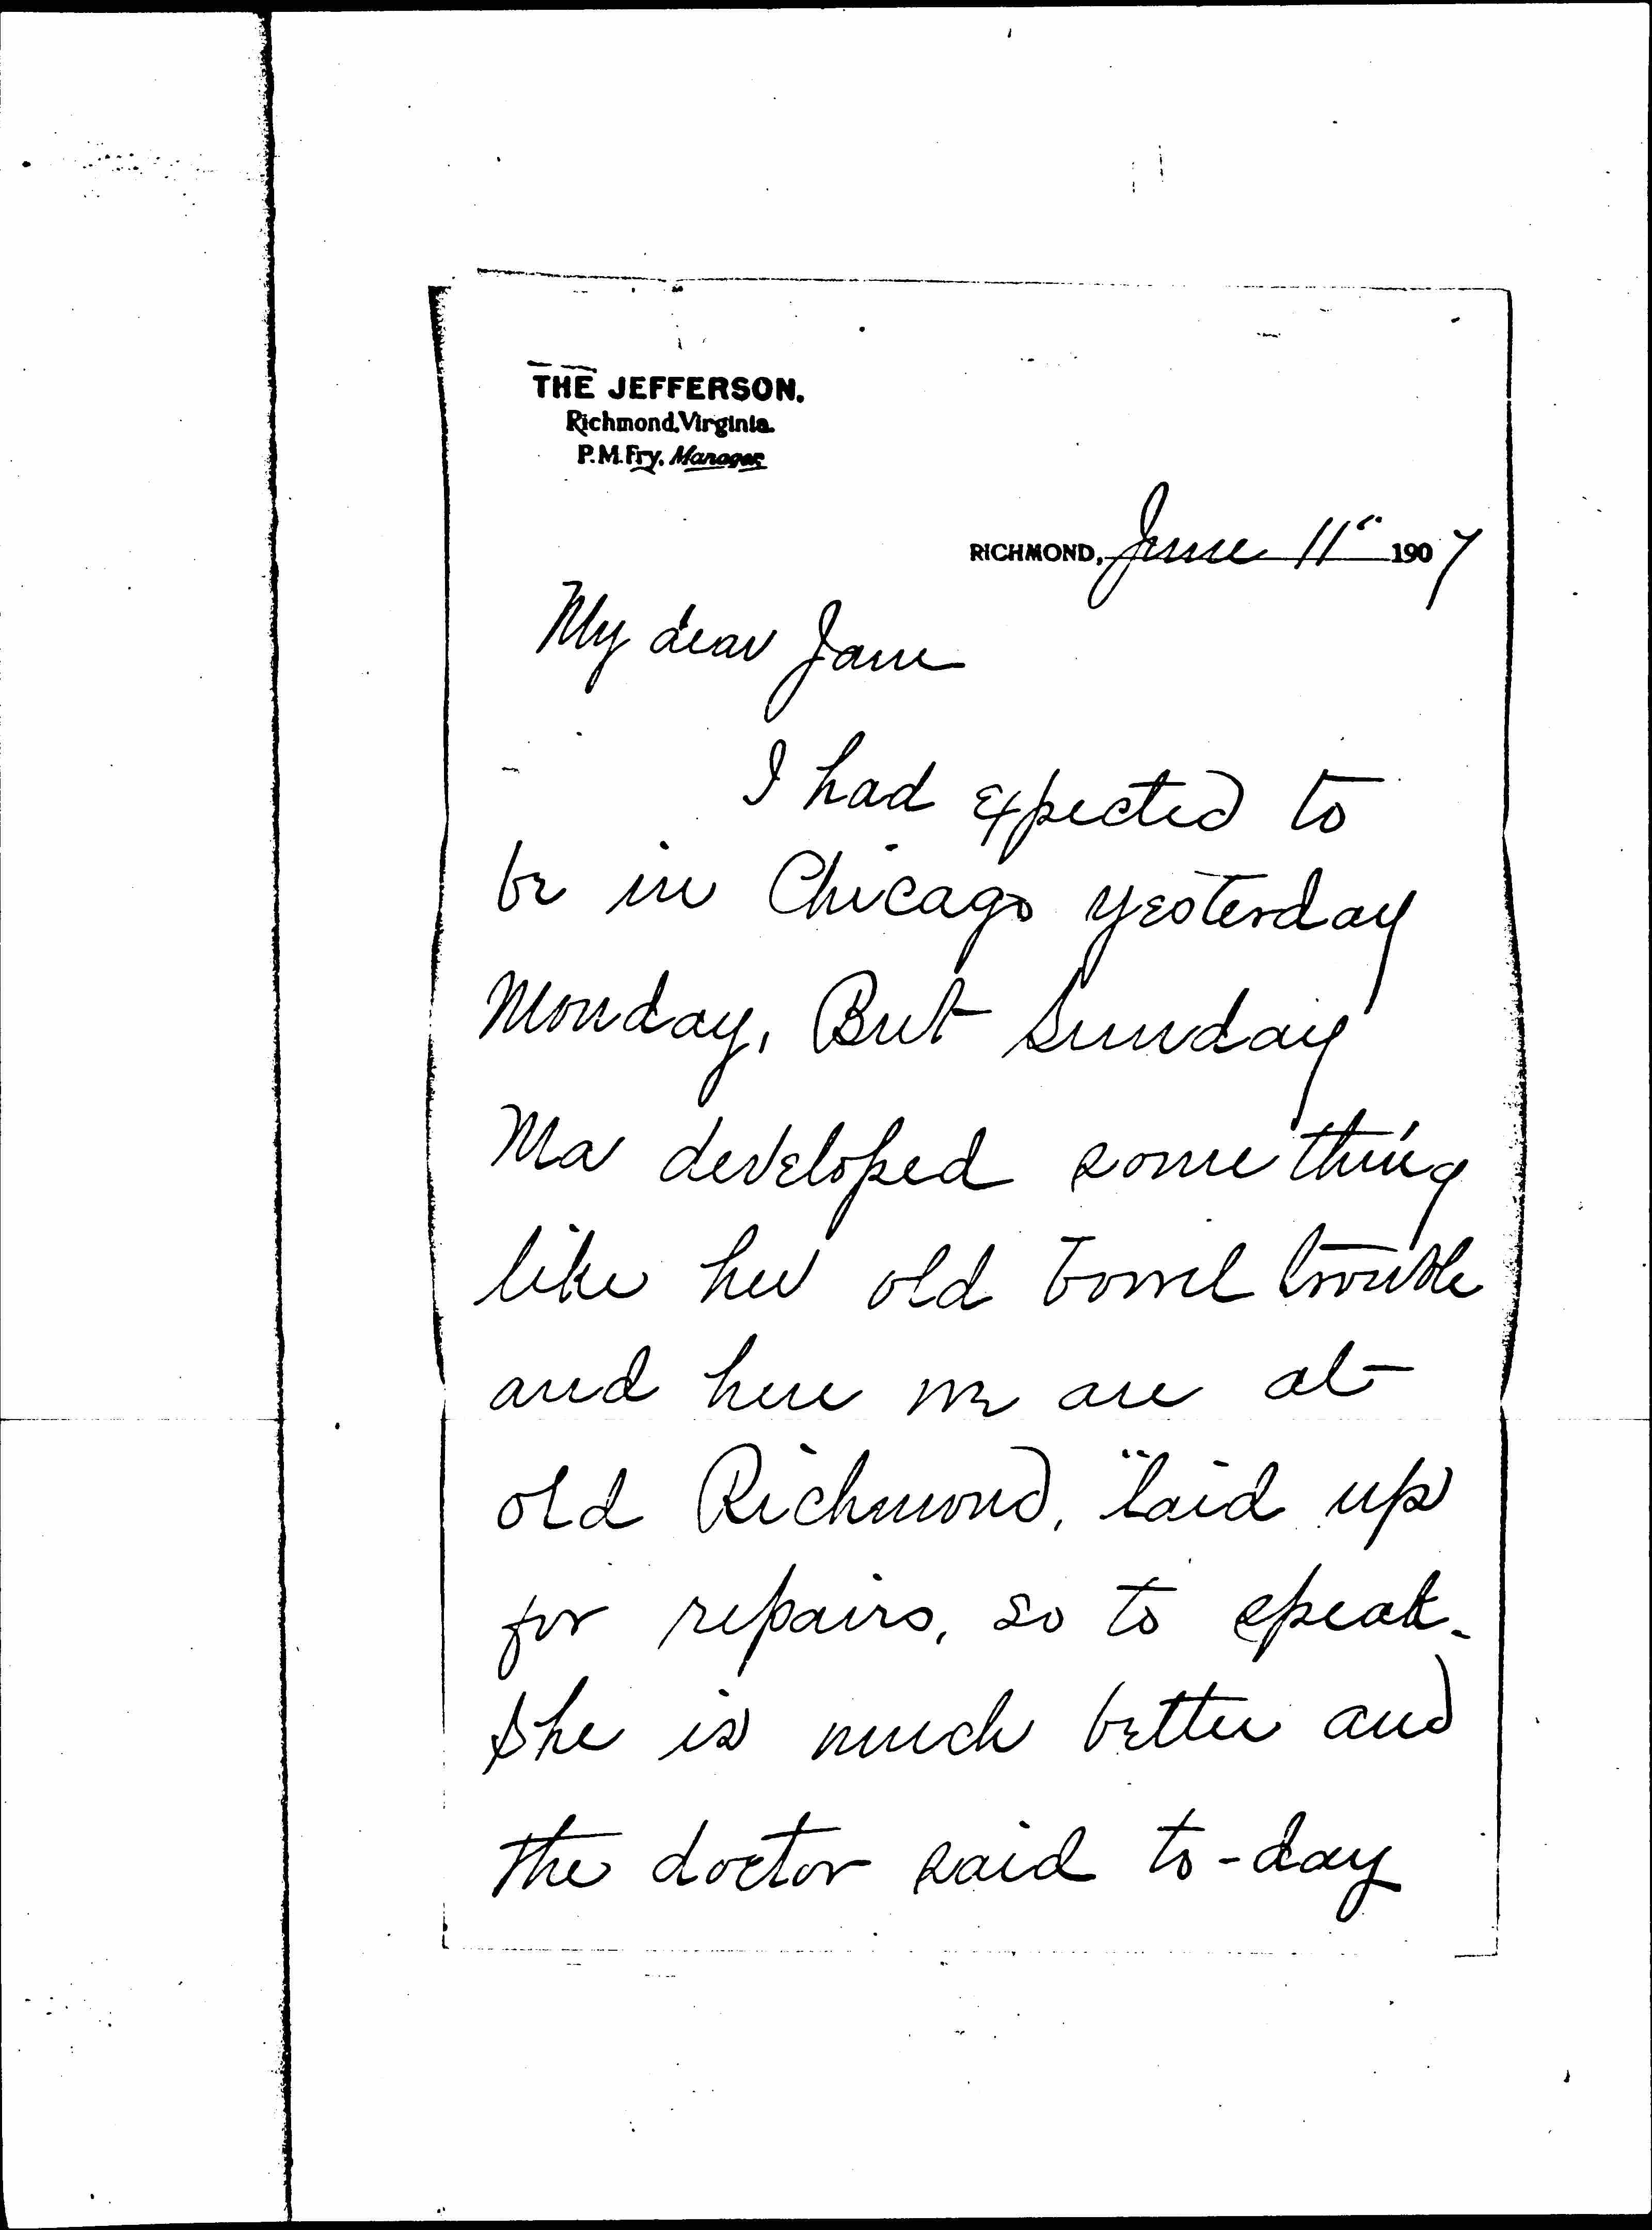 THE JEFFERSON.
Richmond, Virginia.
P.M. Fry, Manager.
RICHMOND, June 11" 1907
My dear Jane
I had expected to
be in Chicago yesterday
Monday, But Sunday
Ma developed some thing
like her old bowel trouble
and here we are at
old Richmond, "laid up
for repairs, so to speak.
She is much better and
the doctor said to-day